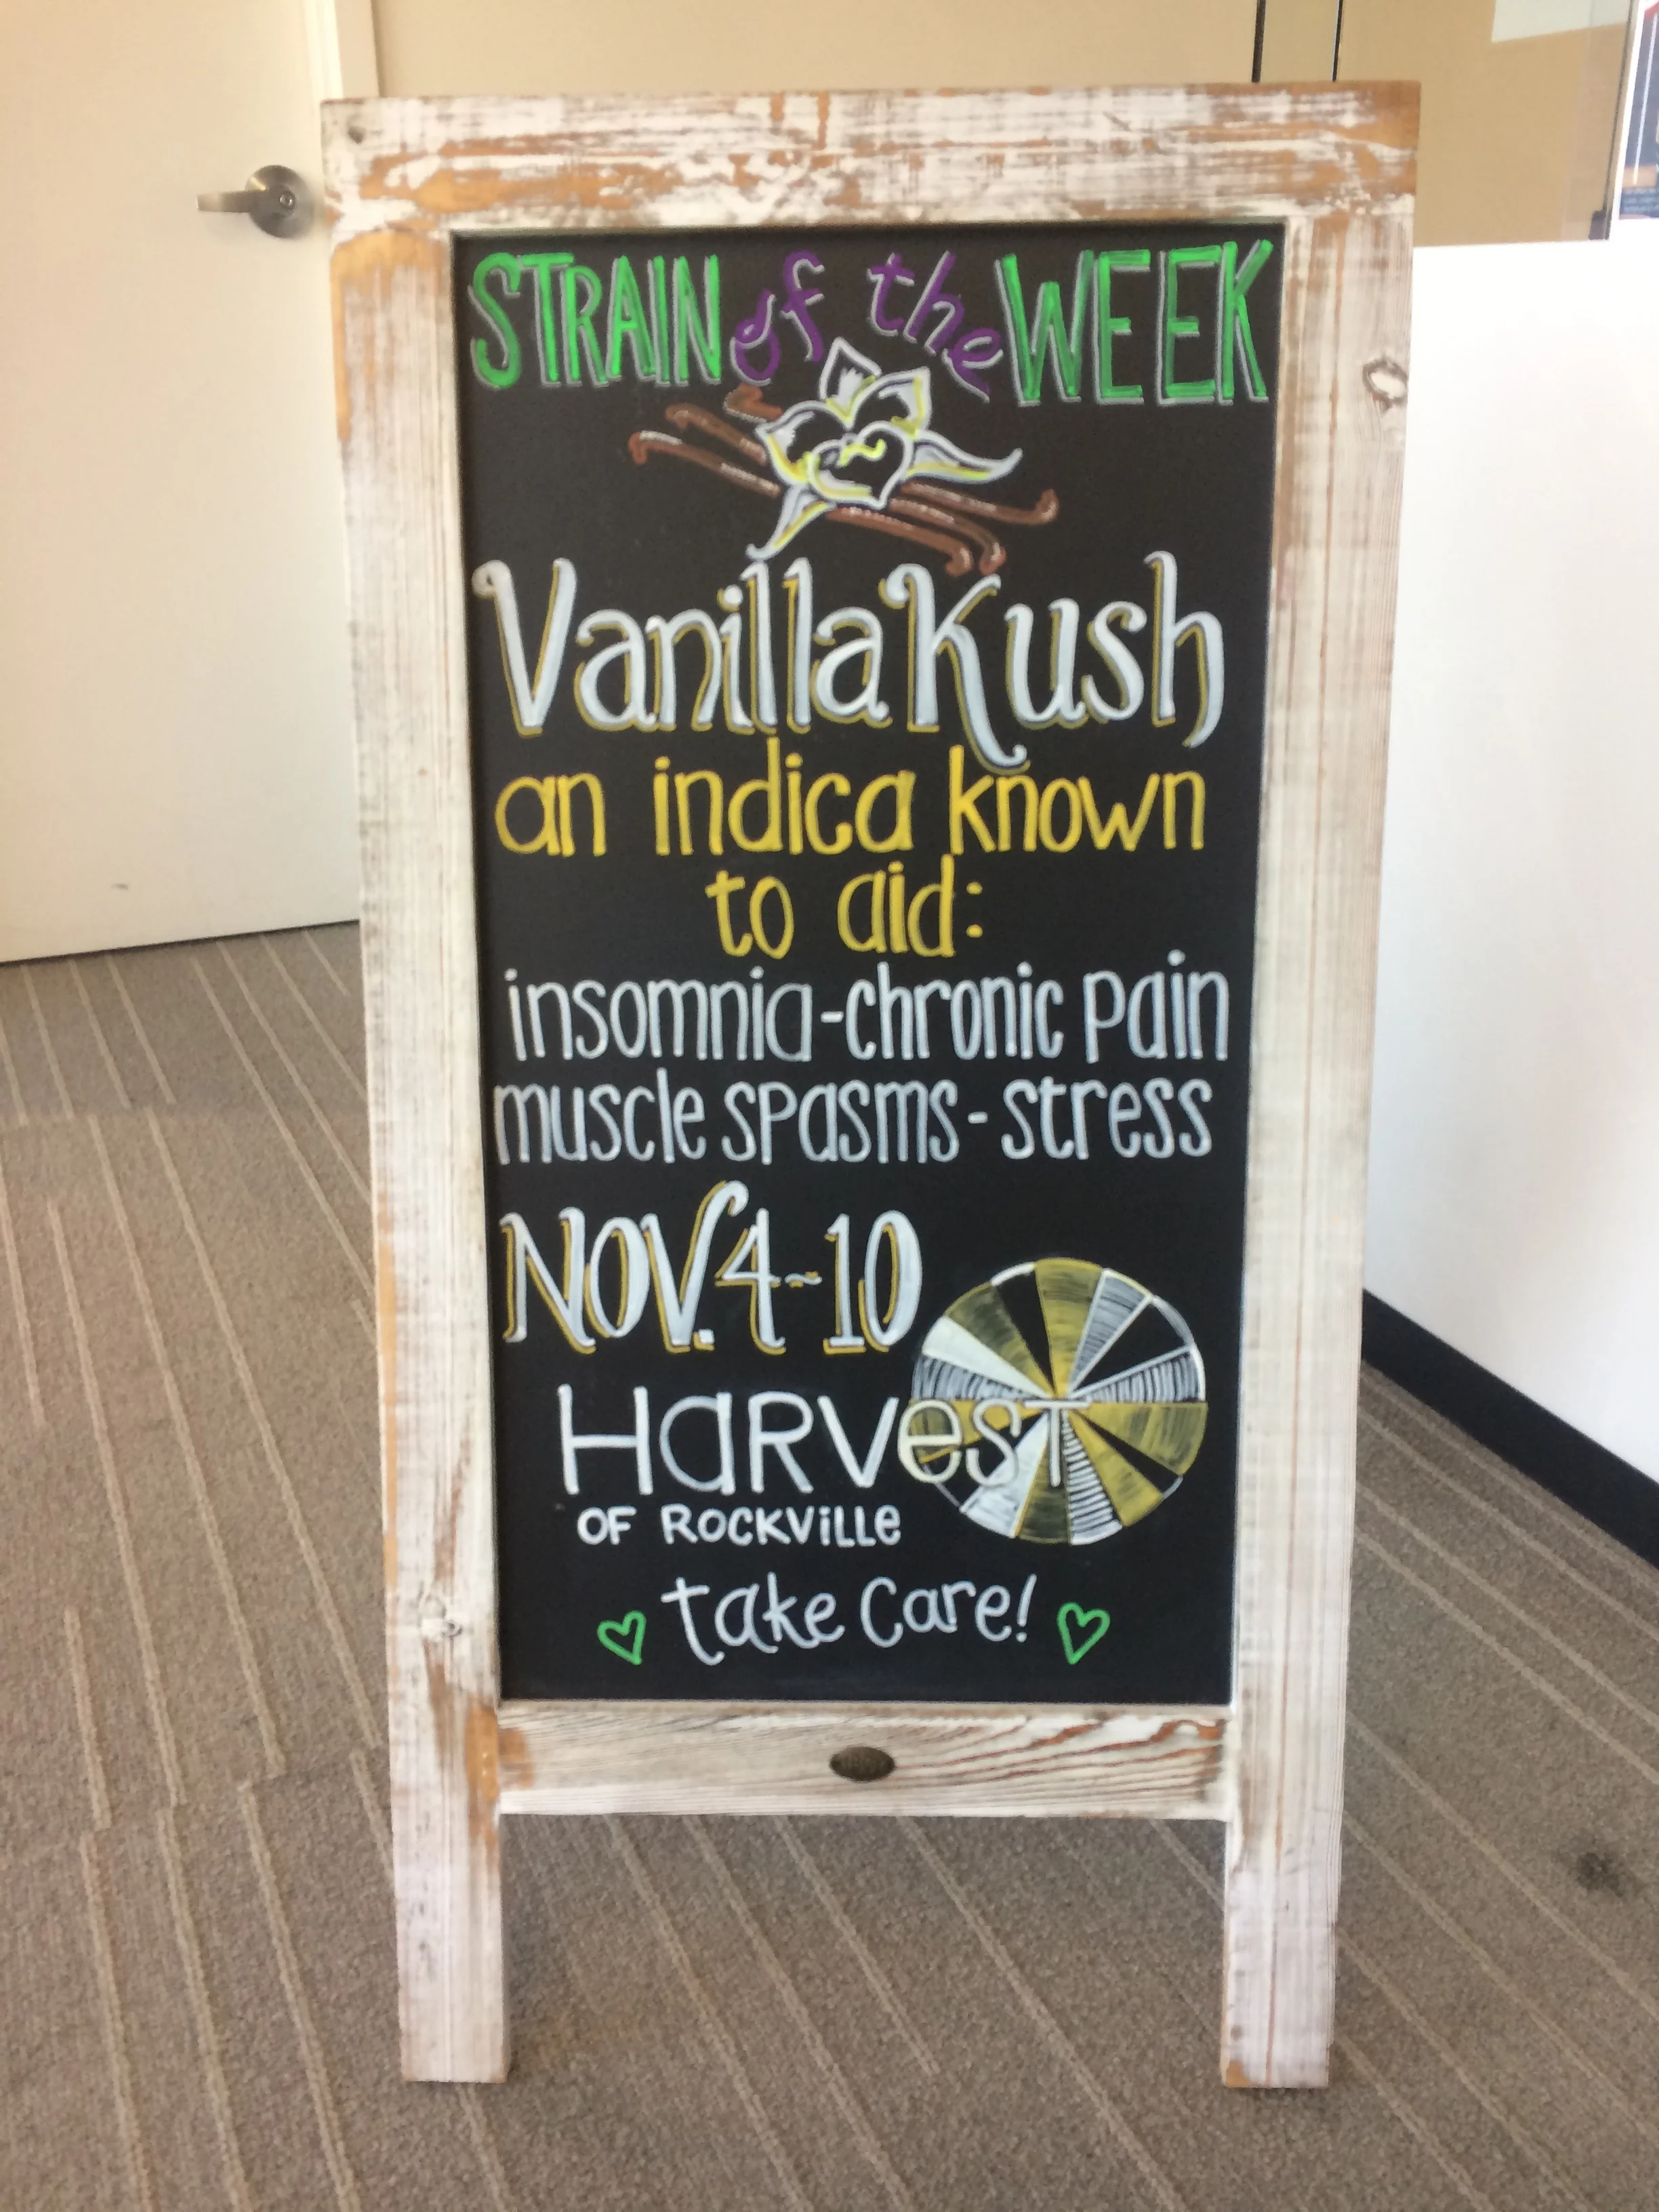 STRAIN of the WEEK
Vanilla Kush
an indica known
to aid:
insomnia-chronic pain
muscle spasms-stress
NOV. 4-10
HaRVesT
OF ROCKViLLe
take care!